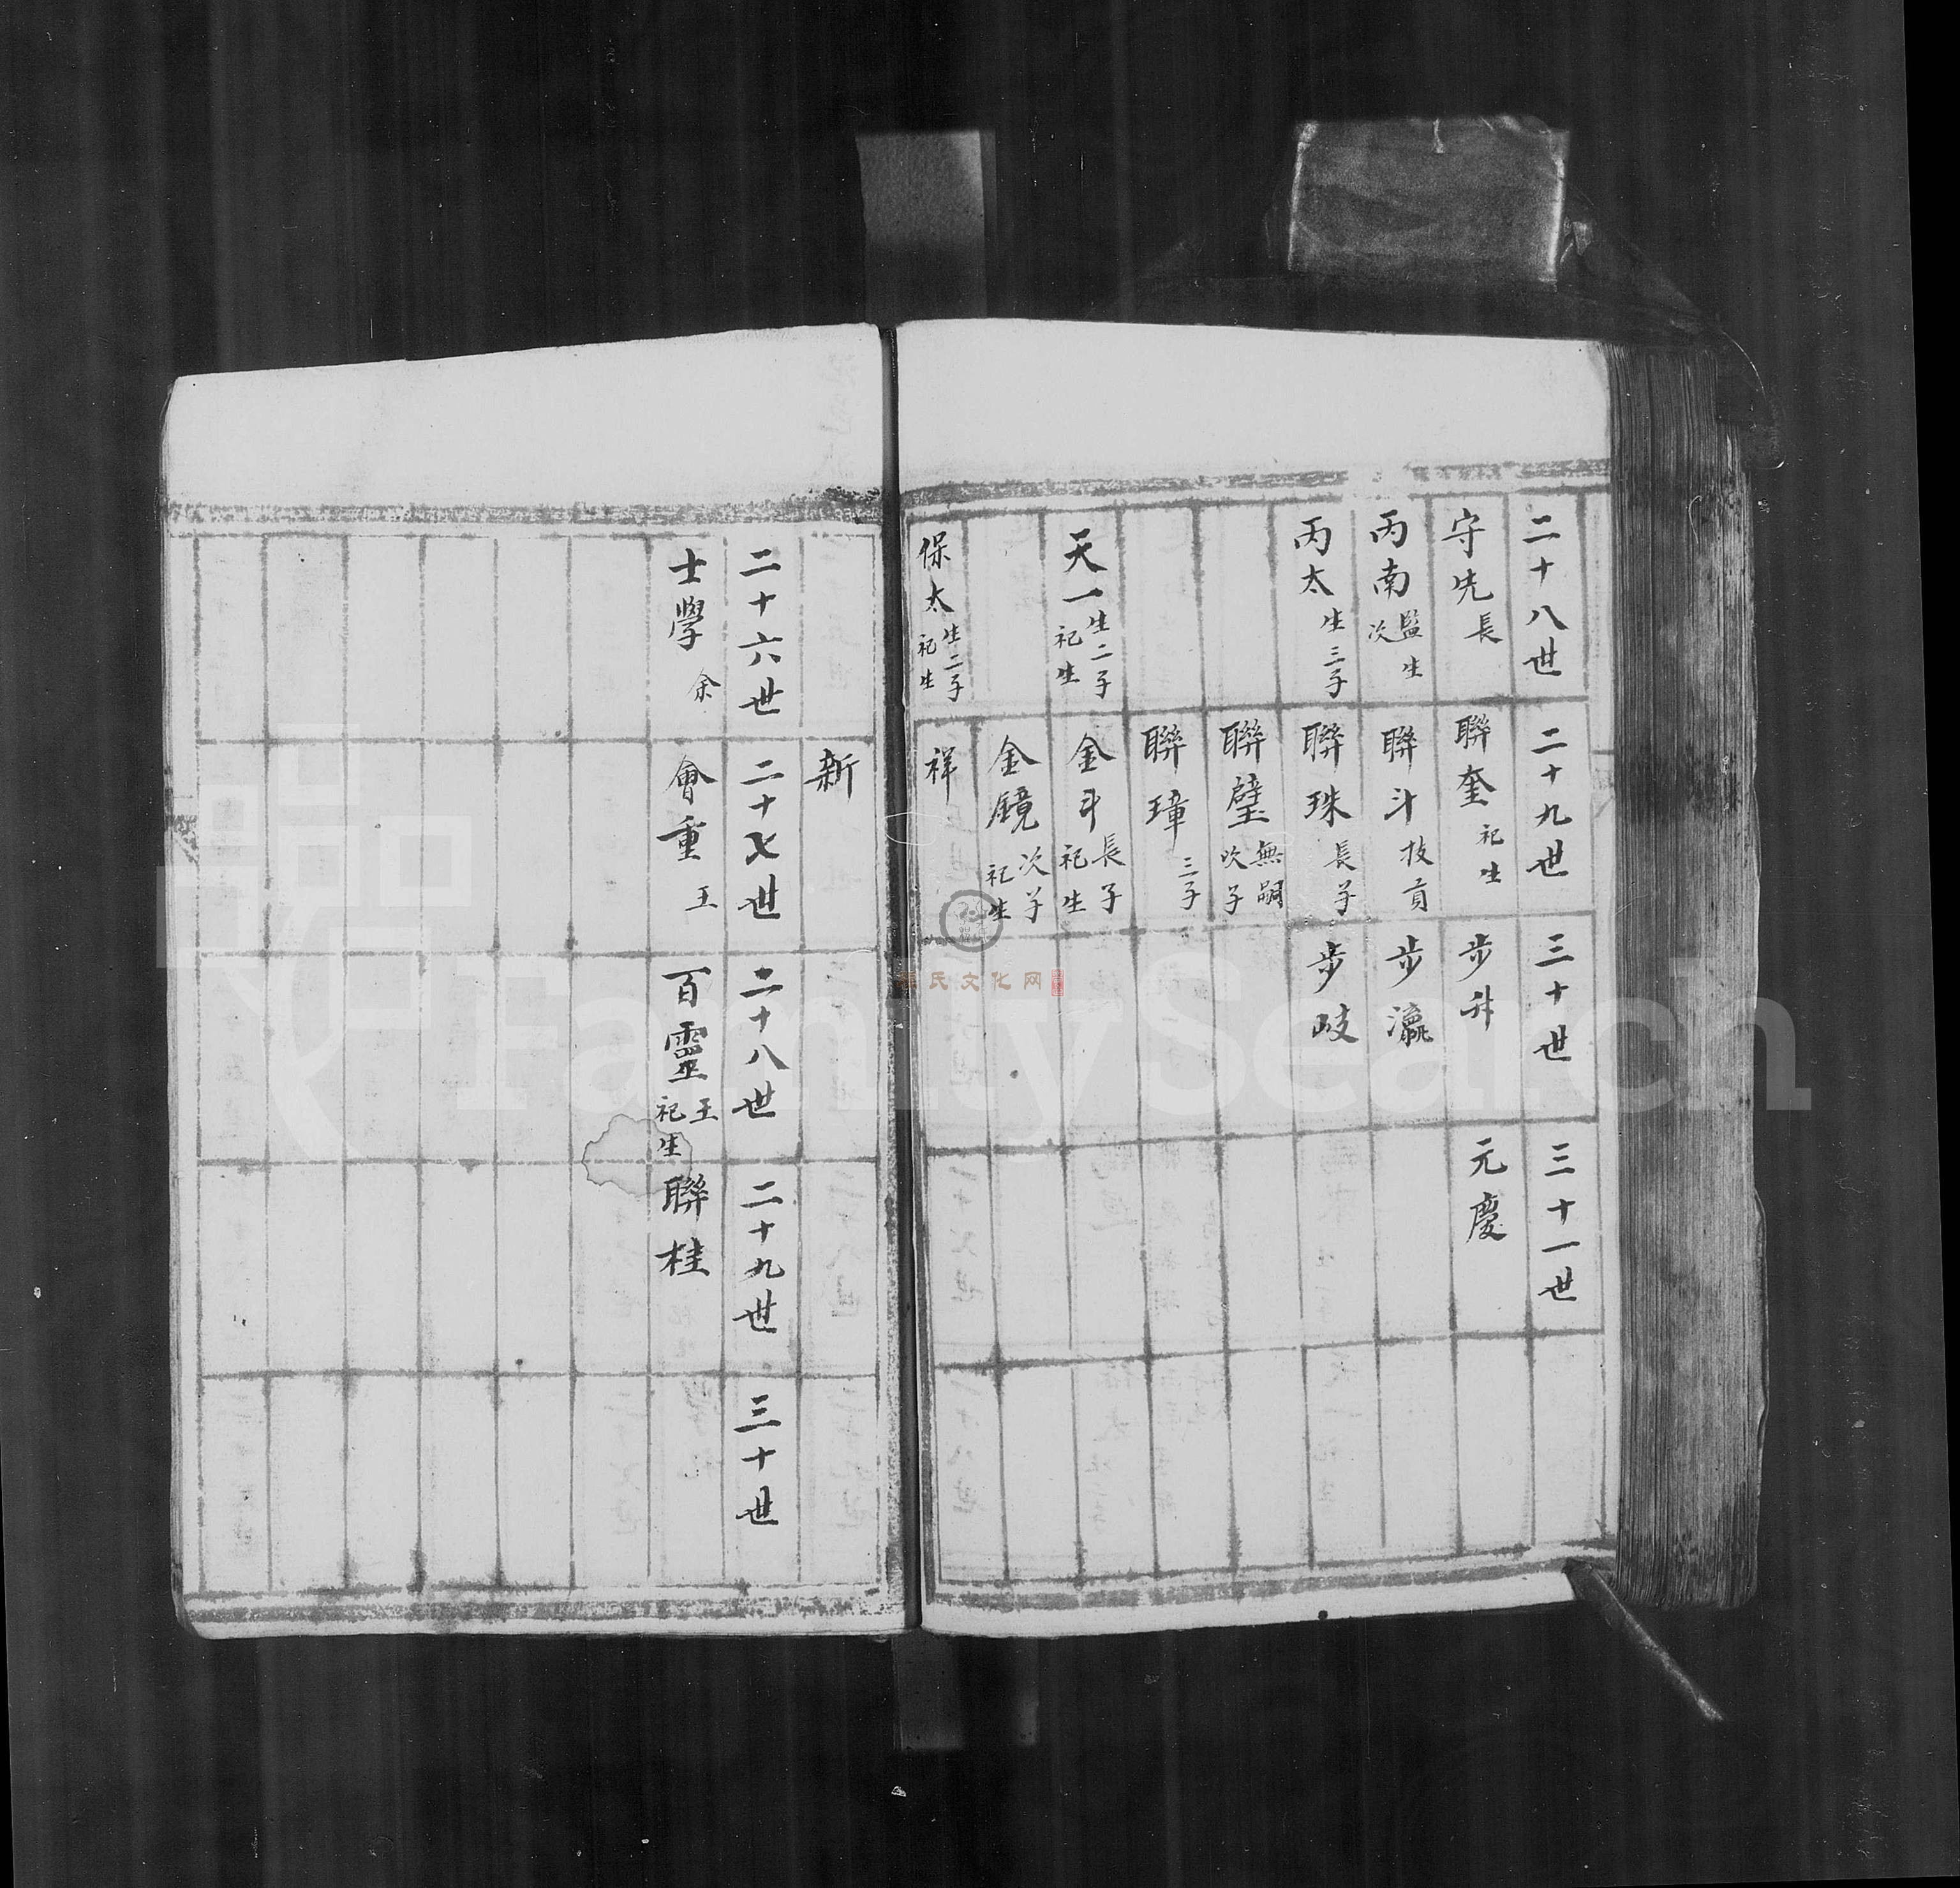 二十八世 二十九世 三十世 三十一世
守先 長 聯奎 祀生 步升 元慶
丙南 監生 次 聯斗 拔貢 步瀛
丙太 生三子 聯珠 長子 步岐
聯璧 無嗣 次子
聯璋 三子
天一 生二子 祀生 金斗 長子 祀生
金鏡 次子 祀生
保太 生二子 祀生 祥
新
二十六世 二十七世 二十八世 二十九世 三十世
士學 余 會重 王 百靈 王 祀生 聯桂
FamilySearch
氏文化网